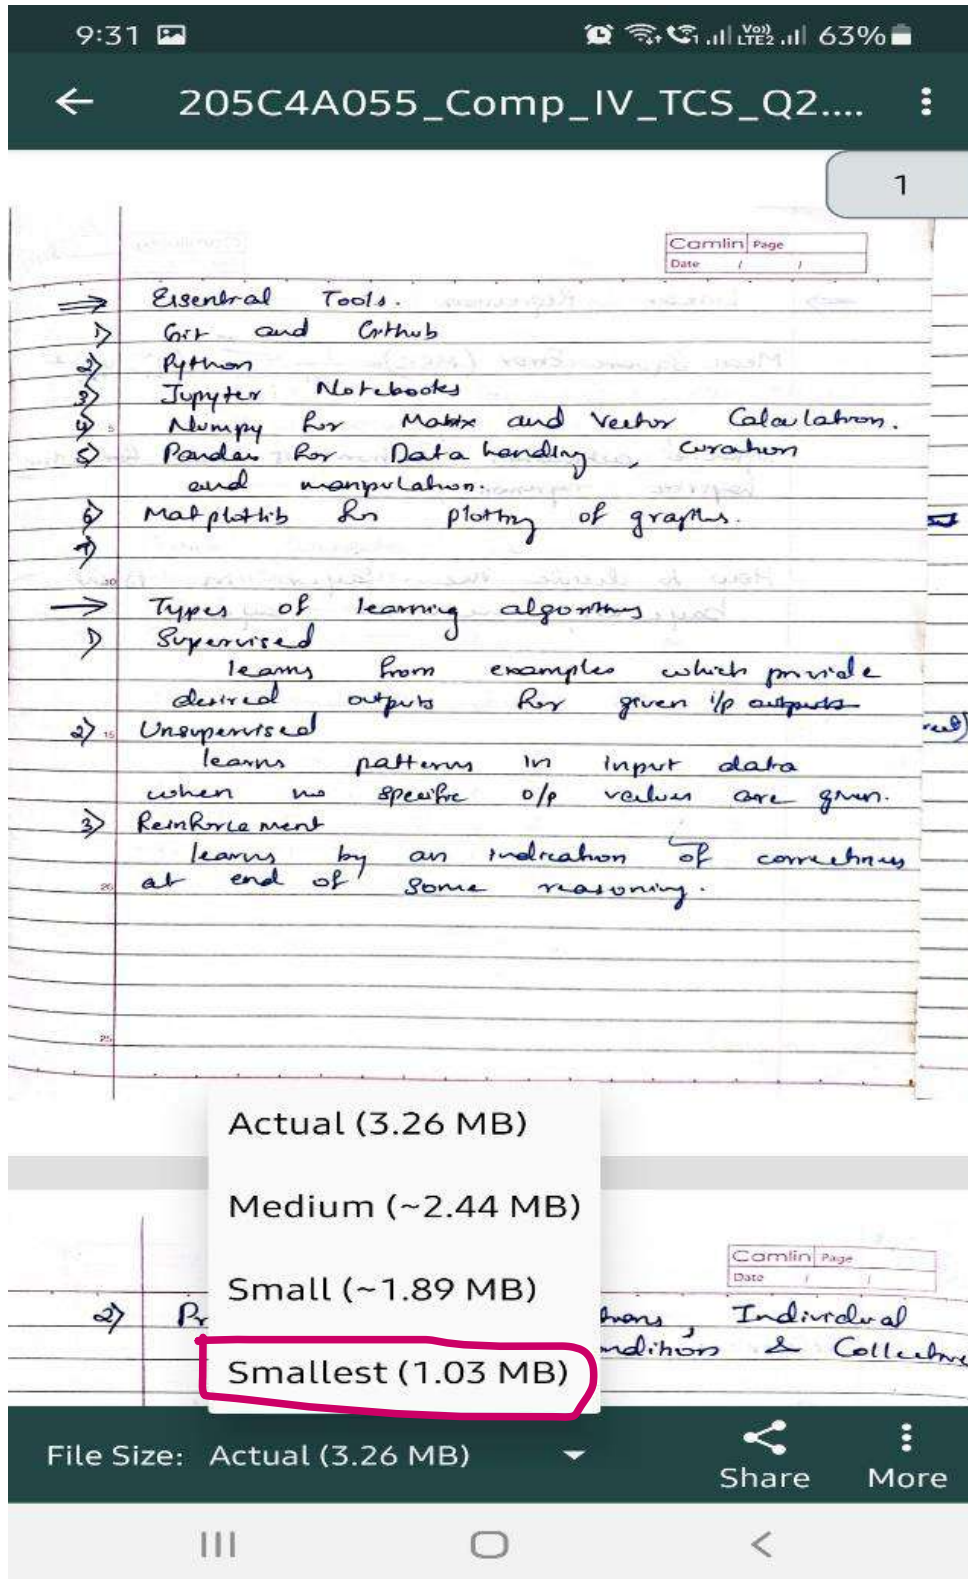 9:31 Vo)) LTE2 63%
205C4A055_Comp_IV_TCS_Q2....
1
Camlin Page
Date / /
Essential Tools.
1) Git and Github
2) Python
3) Jupyter Notebooks
4) Numpy for Matrix and Vector Calculation.
5) Pandas for Data handling, curation
and manipulation.
6) Matplotlib for plotting of graphs.
7)
Types of learning algorithms
1) Supervised
learns from examples which provide
desired outputs for given i/p outputs
2) Unsupervised
learns patterns in input data
when no specific o/p values are given.
3) Reinforcement
learns by an indication of correctness
at end of some reasoning.
Actual (3.26 MB)
Medium (~2.44 MB)
Small (~1.89 MB)
Smallest (1.03 MB)
Camlin Page
Date / /
2) Individual
& Collective
File Size: Actual (3.26 MB)
Share More